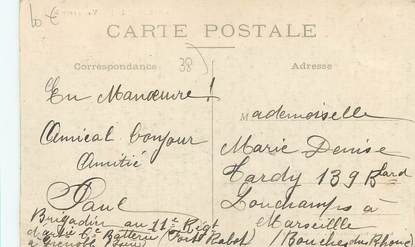 10 €
CARTE POSTALE
Correspondance
38
Adresse
En Manœuvre!
Amical bonjour
Amitié
Paul
Brigadier au 11e Régt
6e Batterie (Fort Rabot)
à Grenoble (Isère)
Mademoiselle
Marie Denise
Tardy 139 Blard
Longchamps à
Marseille
(Bouches du Rhône)